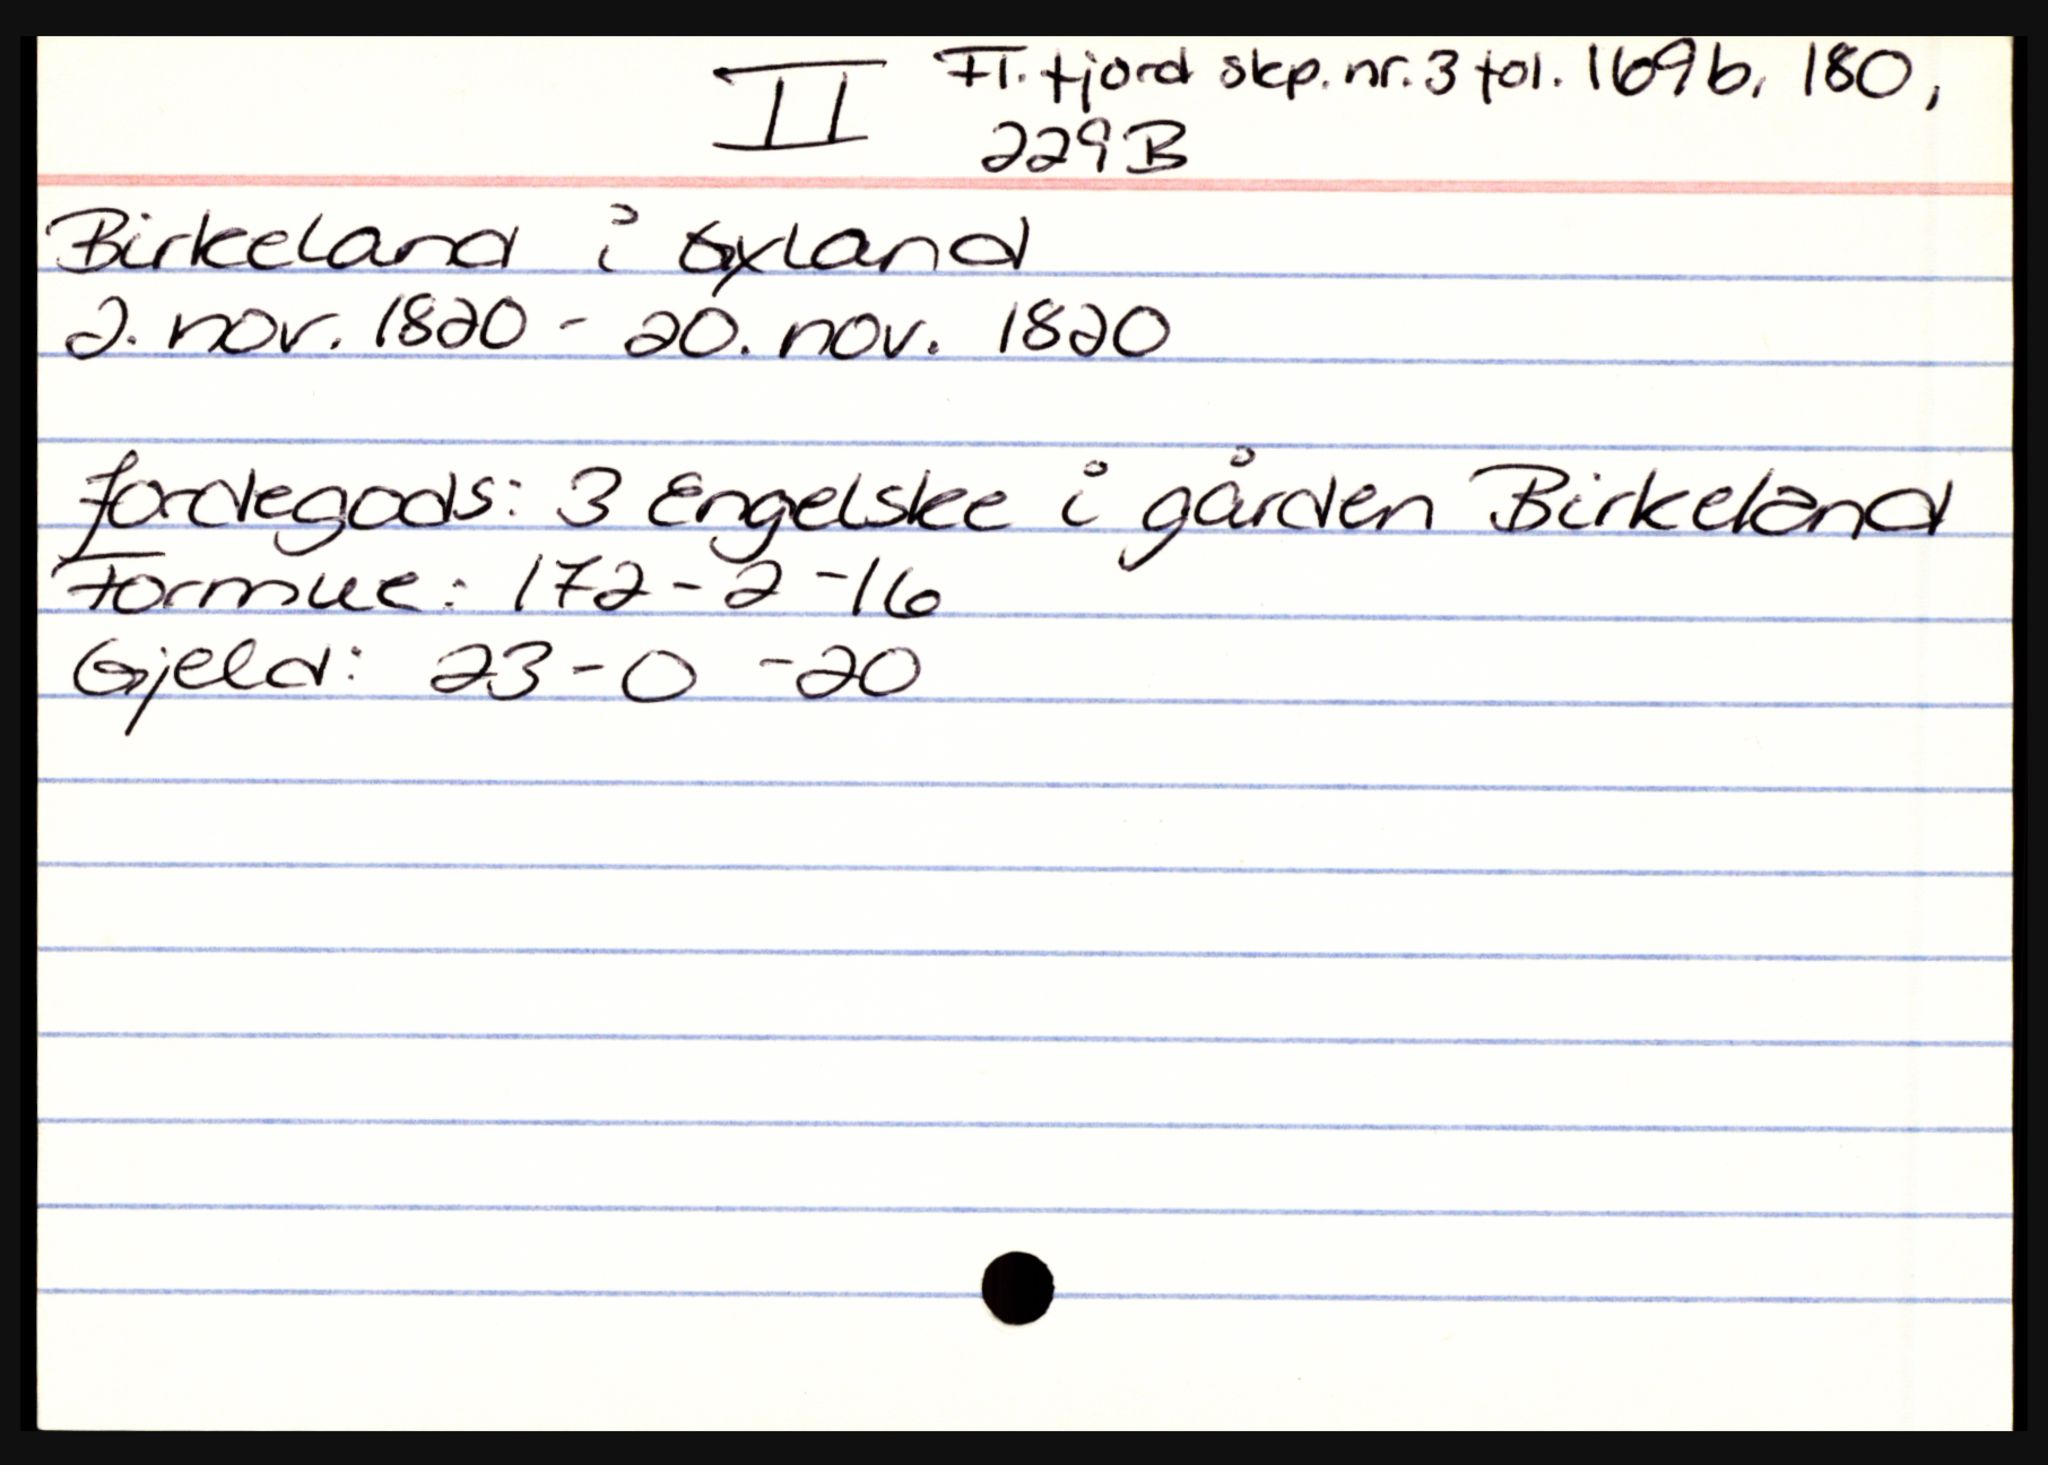 II Fl. fjord skp. nr. 3 fol. 169b, 180,
229B
Birkeland i Gyland
2. nov. 1820 - 20. nov. 1820
Jordegods: 3 Engelske i gården Birkeland
Formue: 172-2-16
Gjeld: 23-0-20